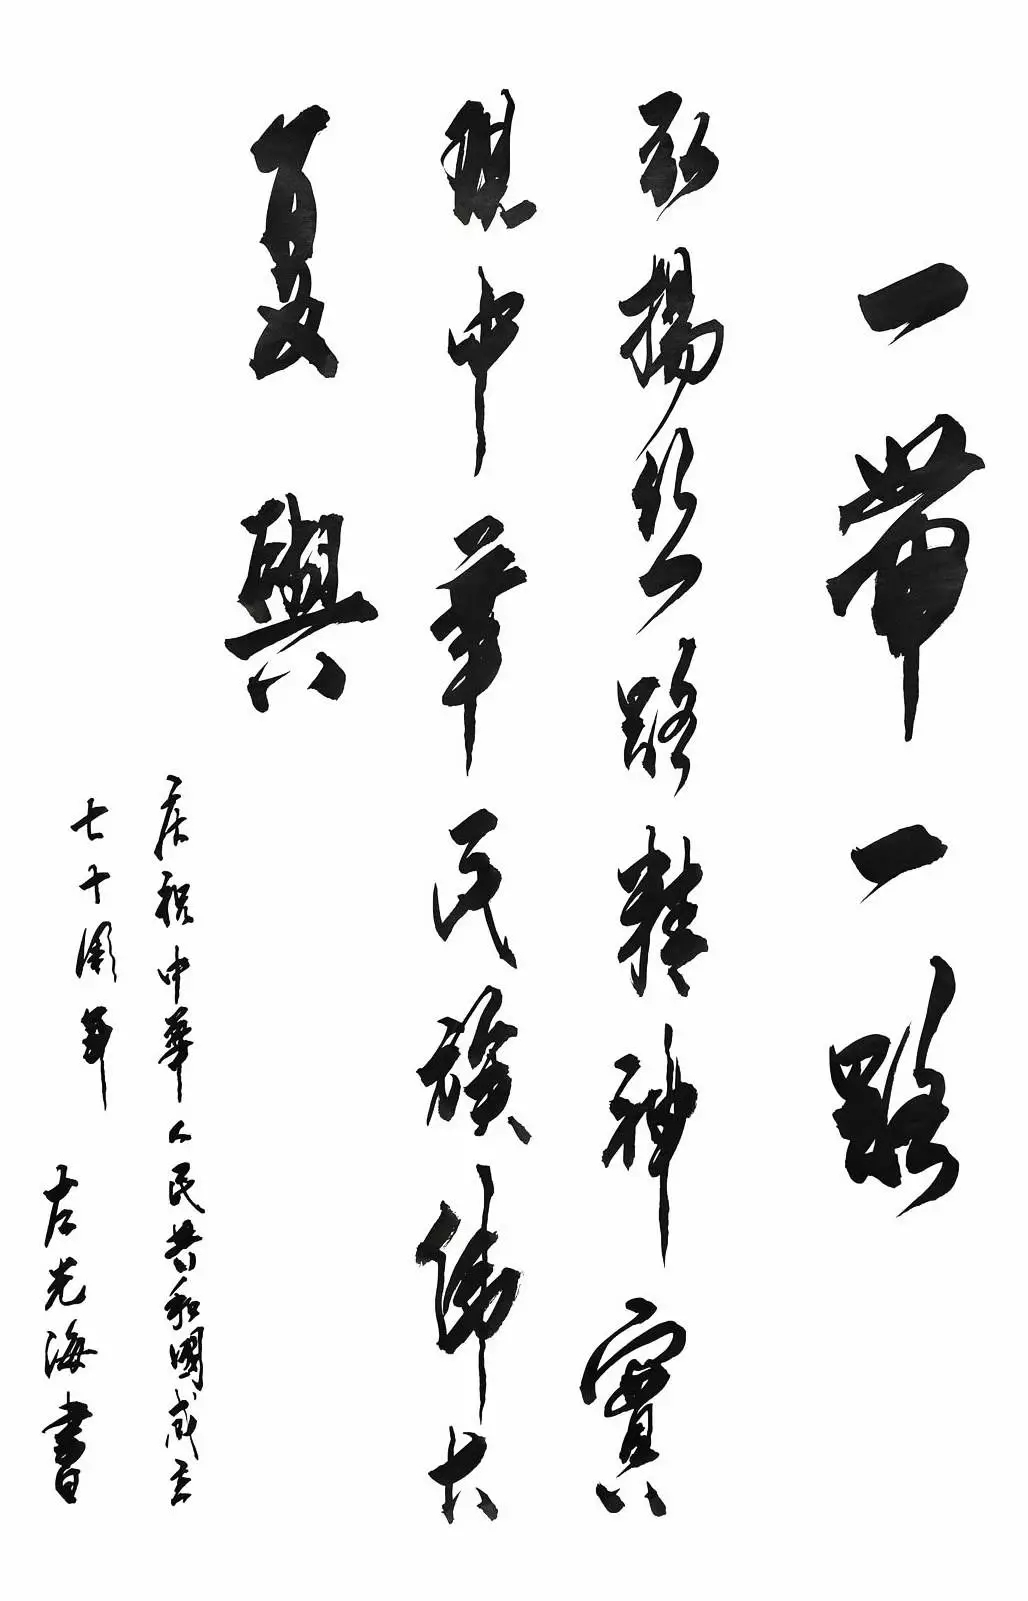 一帶一路
弘揚丝路精神實
現中華民族偉大
复興
庆祝中華人民共和國成立
七十周年
左光海書